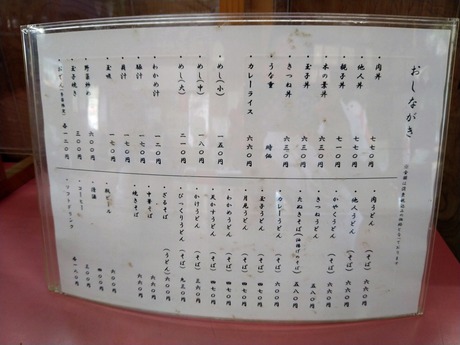 おしながき
・肉丼 七七〇円
・他人丼 七七〇円
・親子丼 七一〇円
・木の葉丼 六三〇円
・玉子丼 六三〇円
・きつね丼 六三〇円
・うな重 時価
・カレーライス 六六〇円
・めし(小) 一五〇円
・めし(中) 一八〇円
・めし(大) 二一〇円
・わかめ汁 一二〇円
・豚汁 一七〇円
・貝汁 一七〇円
・玉吸 一七〇円
・野菜炒め 六〇〇円
・玉子焼き 三〇〇円
・おでん 各一二〇円
・肉うどん(そば) 六六〇円
・他人うどん(そば) 六六〇円
・かやくうどん(そば) 六六〇円
・きつねうどん 五八〇円
・たぬきそば 五八〇円
・カレーうどん(そば) 六〇〇円
・玉子うどん(そば) 四七〇円
・月見うどん(そば) 四七〇円
・わかめうどん(そば) 四七〇円
・天かすうどん(そば) 四七〇円
・かけうどん(そば) 三六〇円
・びっくりうどん(そば)
・ざるそば(うどん) 六〇〇円
・中華そば 六六〇円
・焼きそば 六六〇円
・瓶ビール 六〇〇円
・清酒 五〇〇円
・コーヒー 三〇〇円
・ソフトドリンク 各一八〇円